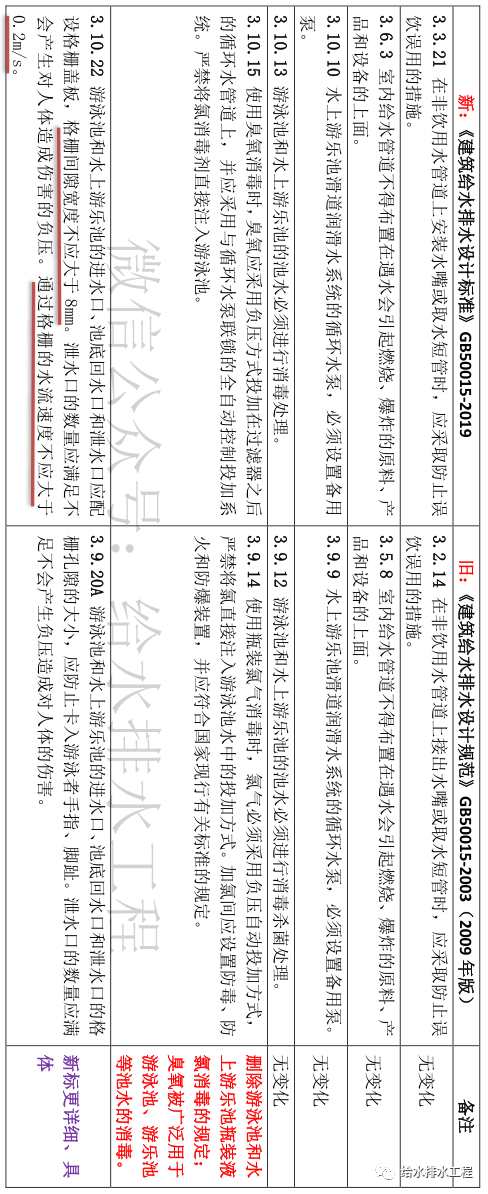 新:《建筑给水排水设计标准》GB50015-2019
旧:《建筑给水排水设计规范》GB50015-2003（2009 年版）
备注
3.3.21 在非饮用水管道上安装水嘴或取水短管时，应采取防止误
饮误用的措施。
3.2.14 在非饮用水管道上接出水嘴或取水短管时，应采取防止误
饮误用的措施。
无变化
3.6.3 室内给水管道不得布置在遇水会引起燃烧、爆炸的原料、产
品和设备的上面。
3.5.8 室内给水管道不得布置在遇水会引起燃烧、爆炸的原料、产
品和设备的上面。
无变化
3.10.10 水上游乐池滑道润滑水系统的循环水泵，必须设置备用
泵。
3.9.9 水上游乐池滑道润滑水系统的循环水泵，必须设置备用泵。
无变化
3.10.13 游泳池和水上游乐池的池水必须进行消毒处理。
3.9.12 游泳池和水上游乐池的池水必须进行消毒杀菌处理。
无变化
3.10.15 使用臭氧消毒时，臭氧应采用负压方式投加在过滤器之后
的循环水管道上，并应采用与循环水泵联锁的全自动控制投加系
统。严禁将氯消毒剂直接注入游泳池。
3.9.14 使用瓶装氯气消毒时，氯气必须采用负压自动投加方式，
严禁将氯直接注入游泳池水中的投加方式。加氯间应设置防毒、防
火和防爆装置，并应符合国家现行有关标准的规定。
删除游泳池和水
上游乐池瓶装液
氯消毒的规定；
臭氧被广泛用于
游泳池、游乐池
等池水的消毒。
3.10.22 游泳池和水上游乐池的进水口、池底回水口和泄水口应配
设格栅盖板，格栅间隙宽度不应大于 8mm。泄水口的数量应满足不
会产生对人体造成伤害的负压。通过格栅的水流速度不应大于
0.2m/s。
3.9.20A 游泳池和水上游乐池的进水口、池底回水口和泄水口的格
栅孔隙的大小，应防止卡入游泳者手指、脚趾。泄水口的数量应满
足不会产生负压造成对人体的伤害。
新标更详细、具
体
微信公众号：给水排水工程
给水排水工程